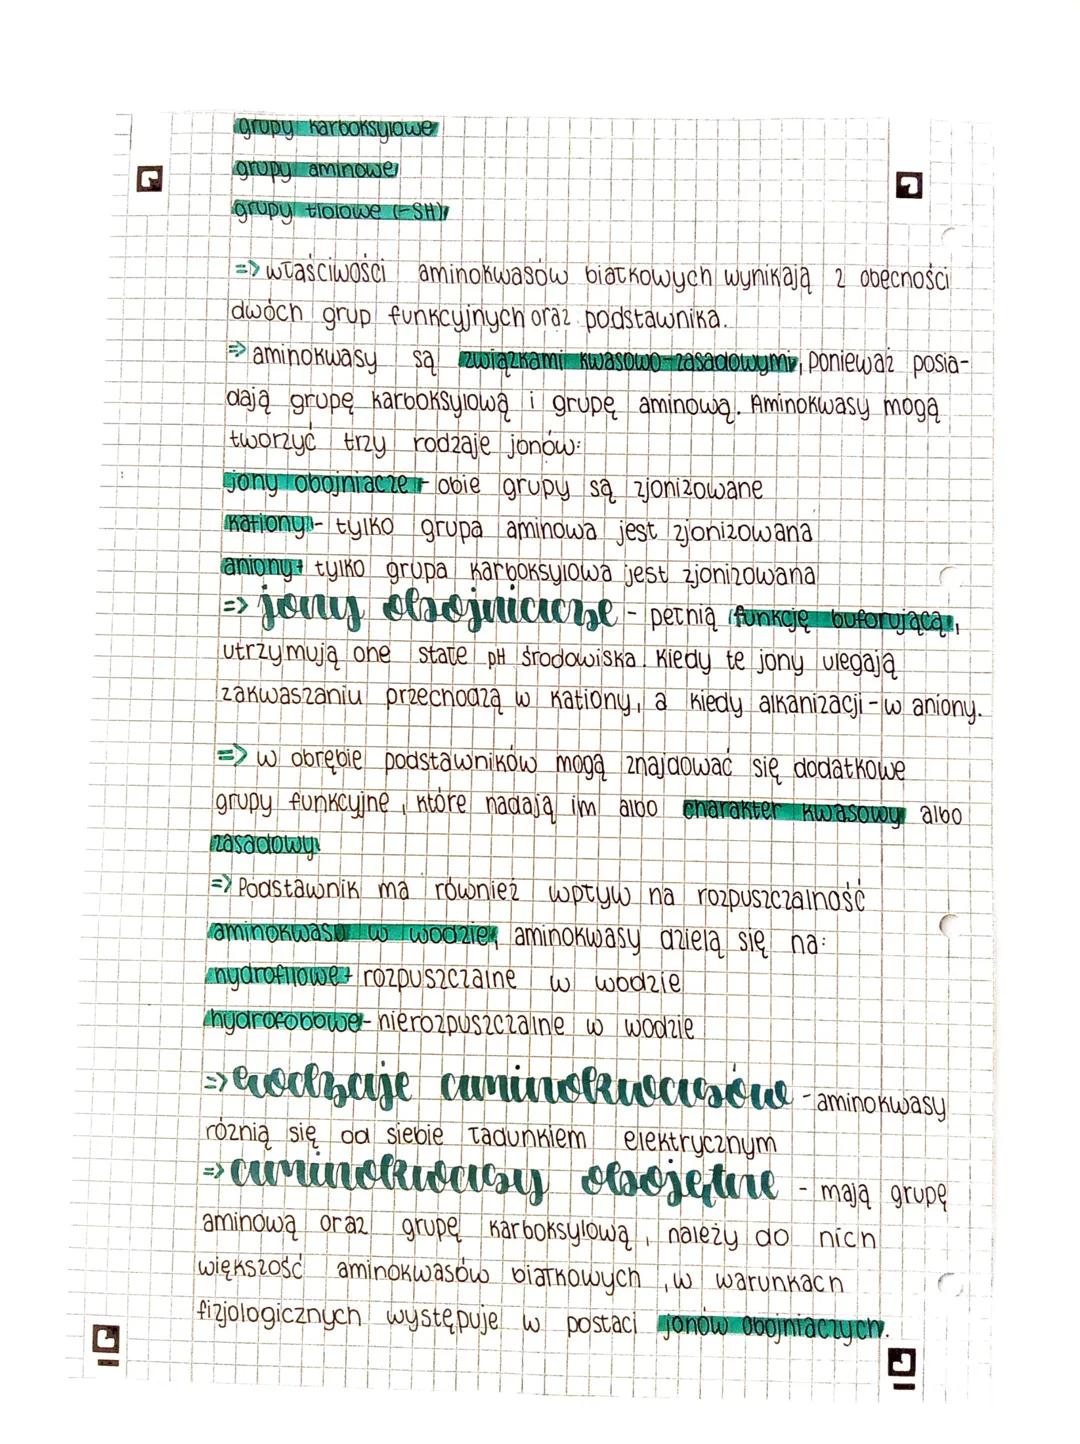 grupy karboksylowe
grupy aminowe
grupy tiolowe (-SH)
=> właściwości aminokwasów białkowych wynikają z obecności
dwóch grup funkcyjnych oraz podstawnika.
=> aminokwasy są związkami kwasowo-zasadowymi, ponieważ posia-
dają grupę karboksylową i grupę aminową. Aminokwasy mogą
tworzyć trzy rodzaje jonów:
jony obojniacze - obie grupy są zjonizowane
kationy - tylko grupa aminowa jest zjonizowana
aniony - tylko grupa karboksylowa jest zjonizowana
=> jony obojniacze - pełnią funkcję buforującą,
utrzymują one stałe pH środowiska. Kiedy te jony ulegają
zakwaszaniu przechodzą w kationy, a kiedy alkanizacji - w aniony.
=> w obrębie podstawników mogą znajdować się dodatkowe
grupy funkcyjne, które nadają im albo charakter kwasowy albo
zasadowy
=> Podstawnik ma również wpływ na rozpuszczalność
aminokwasu w wodzie, aminokwasy dzielą się na:
hydrofilowe - rozpuszczalne w wodzie
hydrofobowe - nierozpuszczalne w wodzie
=> rodzaje aminokwasów - aminokwasy
róznią się od siebie ładunkiem elektrycznym
=> aminokwasy obojętne - mają grupę
aminową oraz grupę karboksylową, należy do nich
większość aminokwasów białkowych, w warunkach
fizjologicznych występuje w postaci jonów obojniaczych.